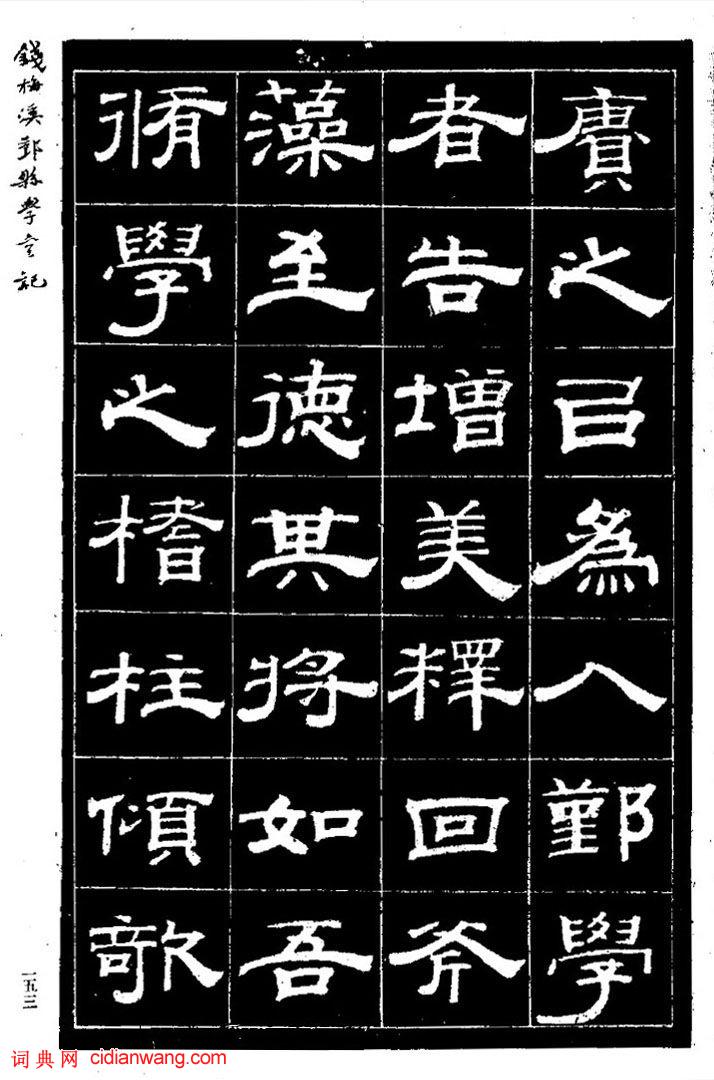 廣之㠯為入鄞學
者告增美釋回斧
藻至德其將如吾
脩學之榰柱傾欹
錢梅溪鄞縣學宮記
一五三
词典网 cidianwang.com